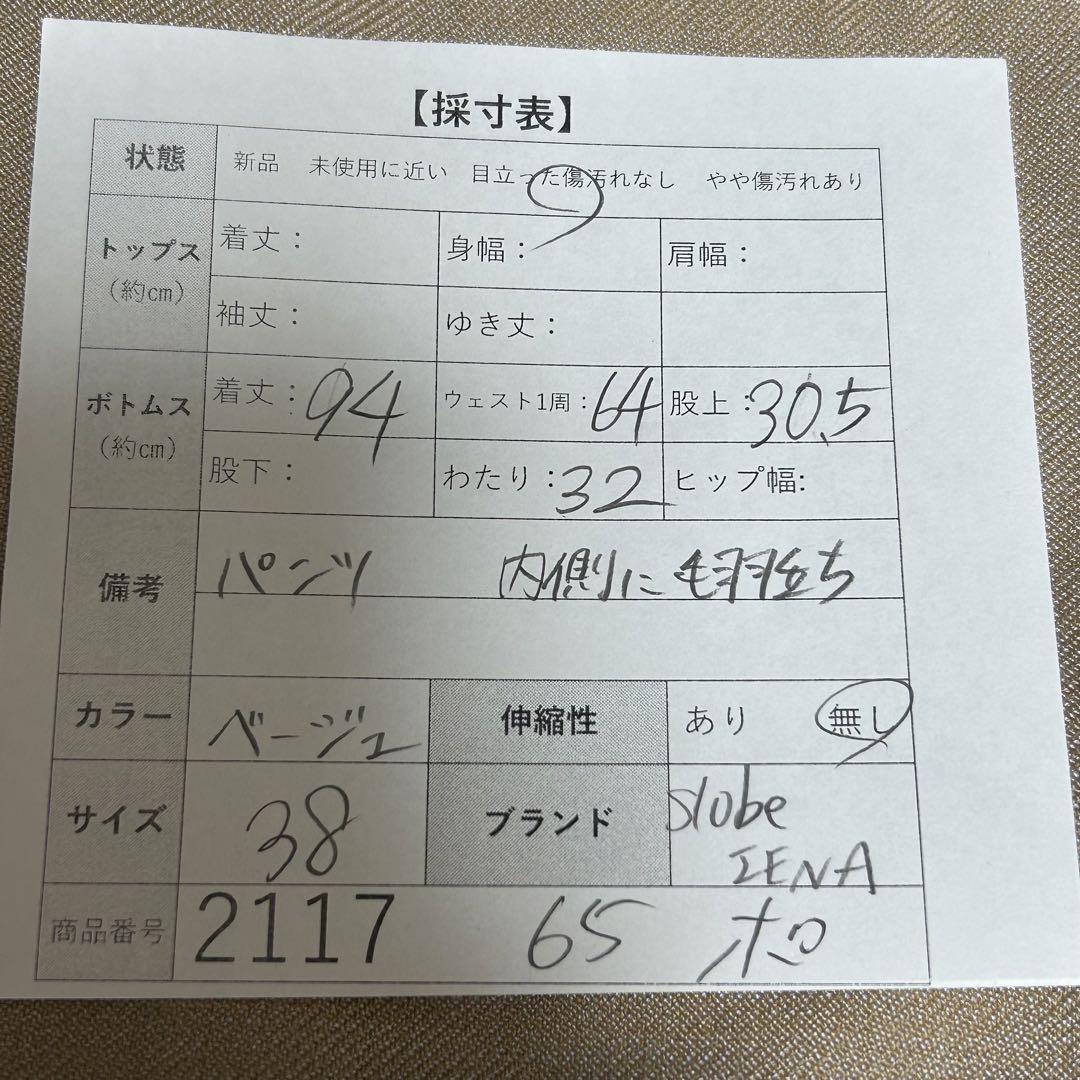 【採寸表】
状態 新品 未使用に近い 目立った傷汚れなし やや傷汚れあり
トップス (約cm)
着丈： 身幅： 肩幅：
袖丈： ゆき丈：
ボトムス (約cm)
着丈：94 ウェスト1周：64 股上：30.5
股下： わたり：32 ヒップ幅:
備考 パンツ 内側に毛羽立ち
カラー ベージュ 伸縮性 あり 無し
サイズ 38 ブランド slobe
IENA
商品番号 2117 65